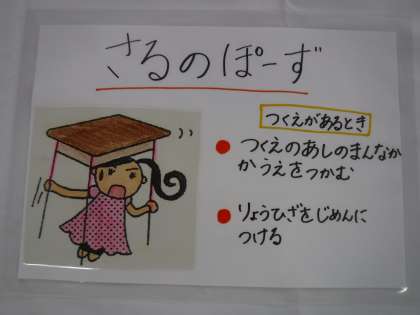 さるのぽーず
つくえがあるとき
つくえのあしのまんなか
かうえをつかむ
りょうひざをじめんに
つける